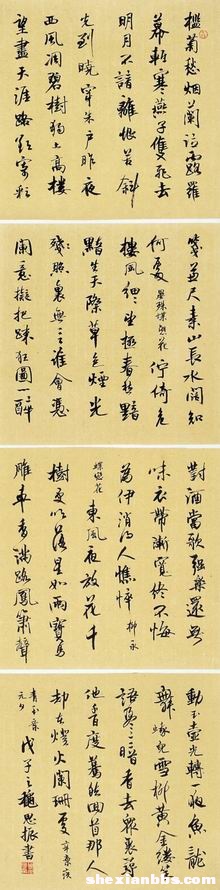 檻菊愁烟蘭泣露羅
幕輕寒燕子雙飛去
明月不諳離恨苦斜
光到曉穿朱戶昨夜
西風凋碧樹獨上高樓
望盡天涯路欲寄彩
箋兼尺素山長水闊知
何處 晏殊蝶戀花 佇倚危
樓風細細望極春愁黯
黯生天際草色煙光
殘照裏無言誰會憑
闌意擬把疏狂圖一醉
對酒當歌強樂還無
味衣帶漸寬終不悔
為伊消得人憔悴 柳永
蝶戀花 東風夜放花千
樹更吹落星如雨寶馬
雕車香滿路鳳簫聲
動玉壺光轉一夜魚龍
舞蛾兒雪柳黃金縷笑
語盈盈暗香去衆裏尋
他千百度驀然回首那人
却在燈火闌珊處 辛棄疾
青玉案
元夕
戊子之秋思振書
www.shexianbbs.com